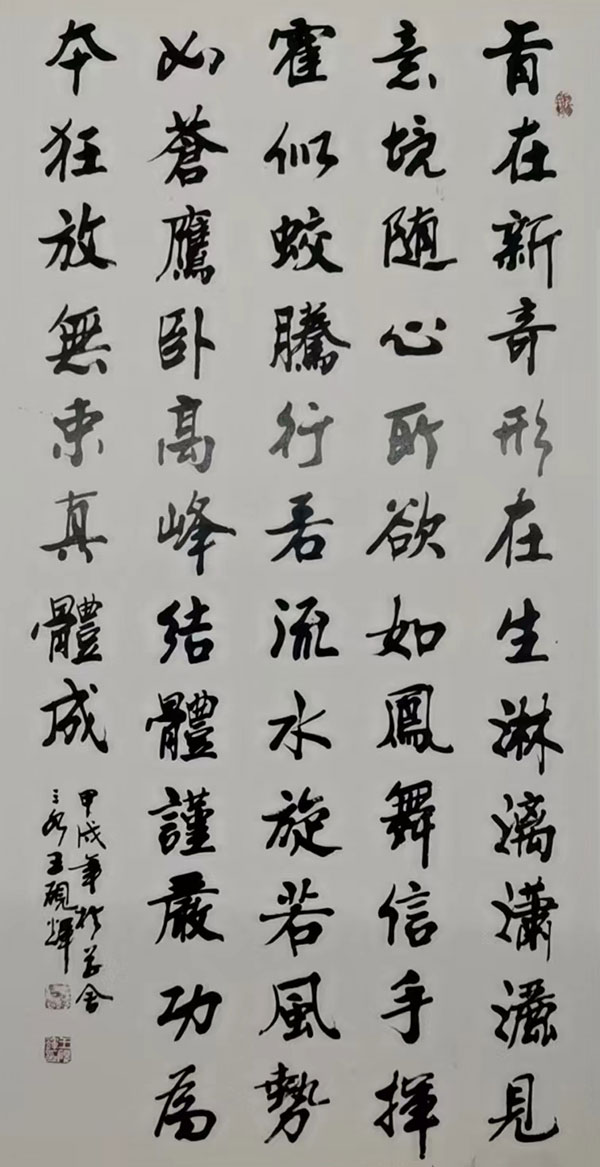 旨在新奇形在生淋漓瀟灑見
意境随心所欲如鳳舞信手揮
霍似蛟騰行若流水旋若風勢
如蒼鷹卧高峰結體謹嚴功為
本狂放無束真體成
甲戌年於草舍
王硯輝